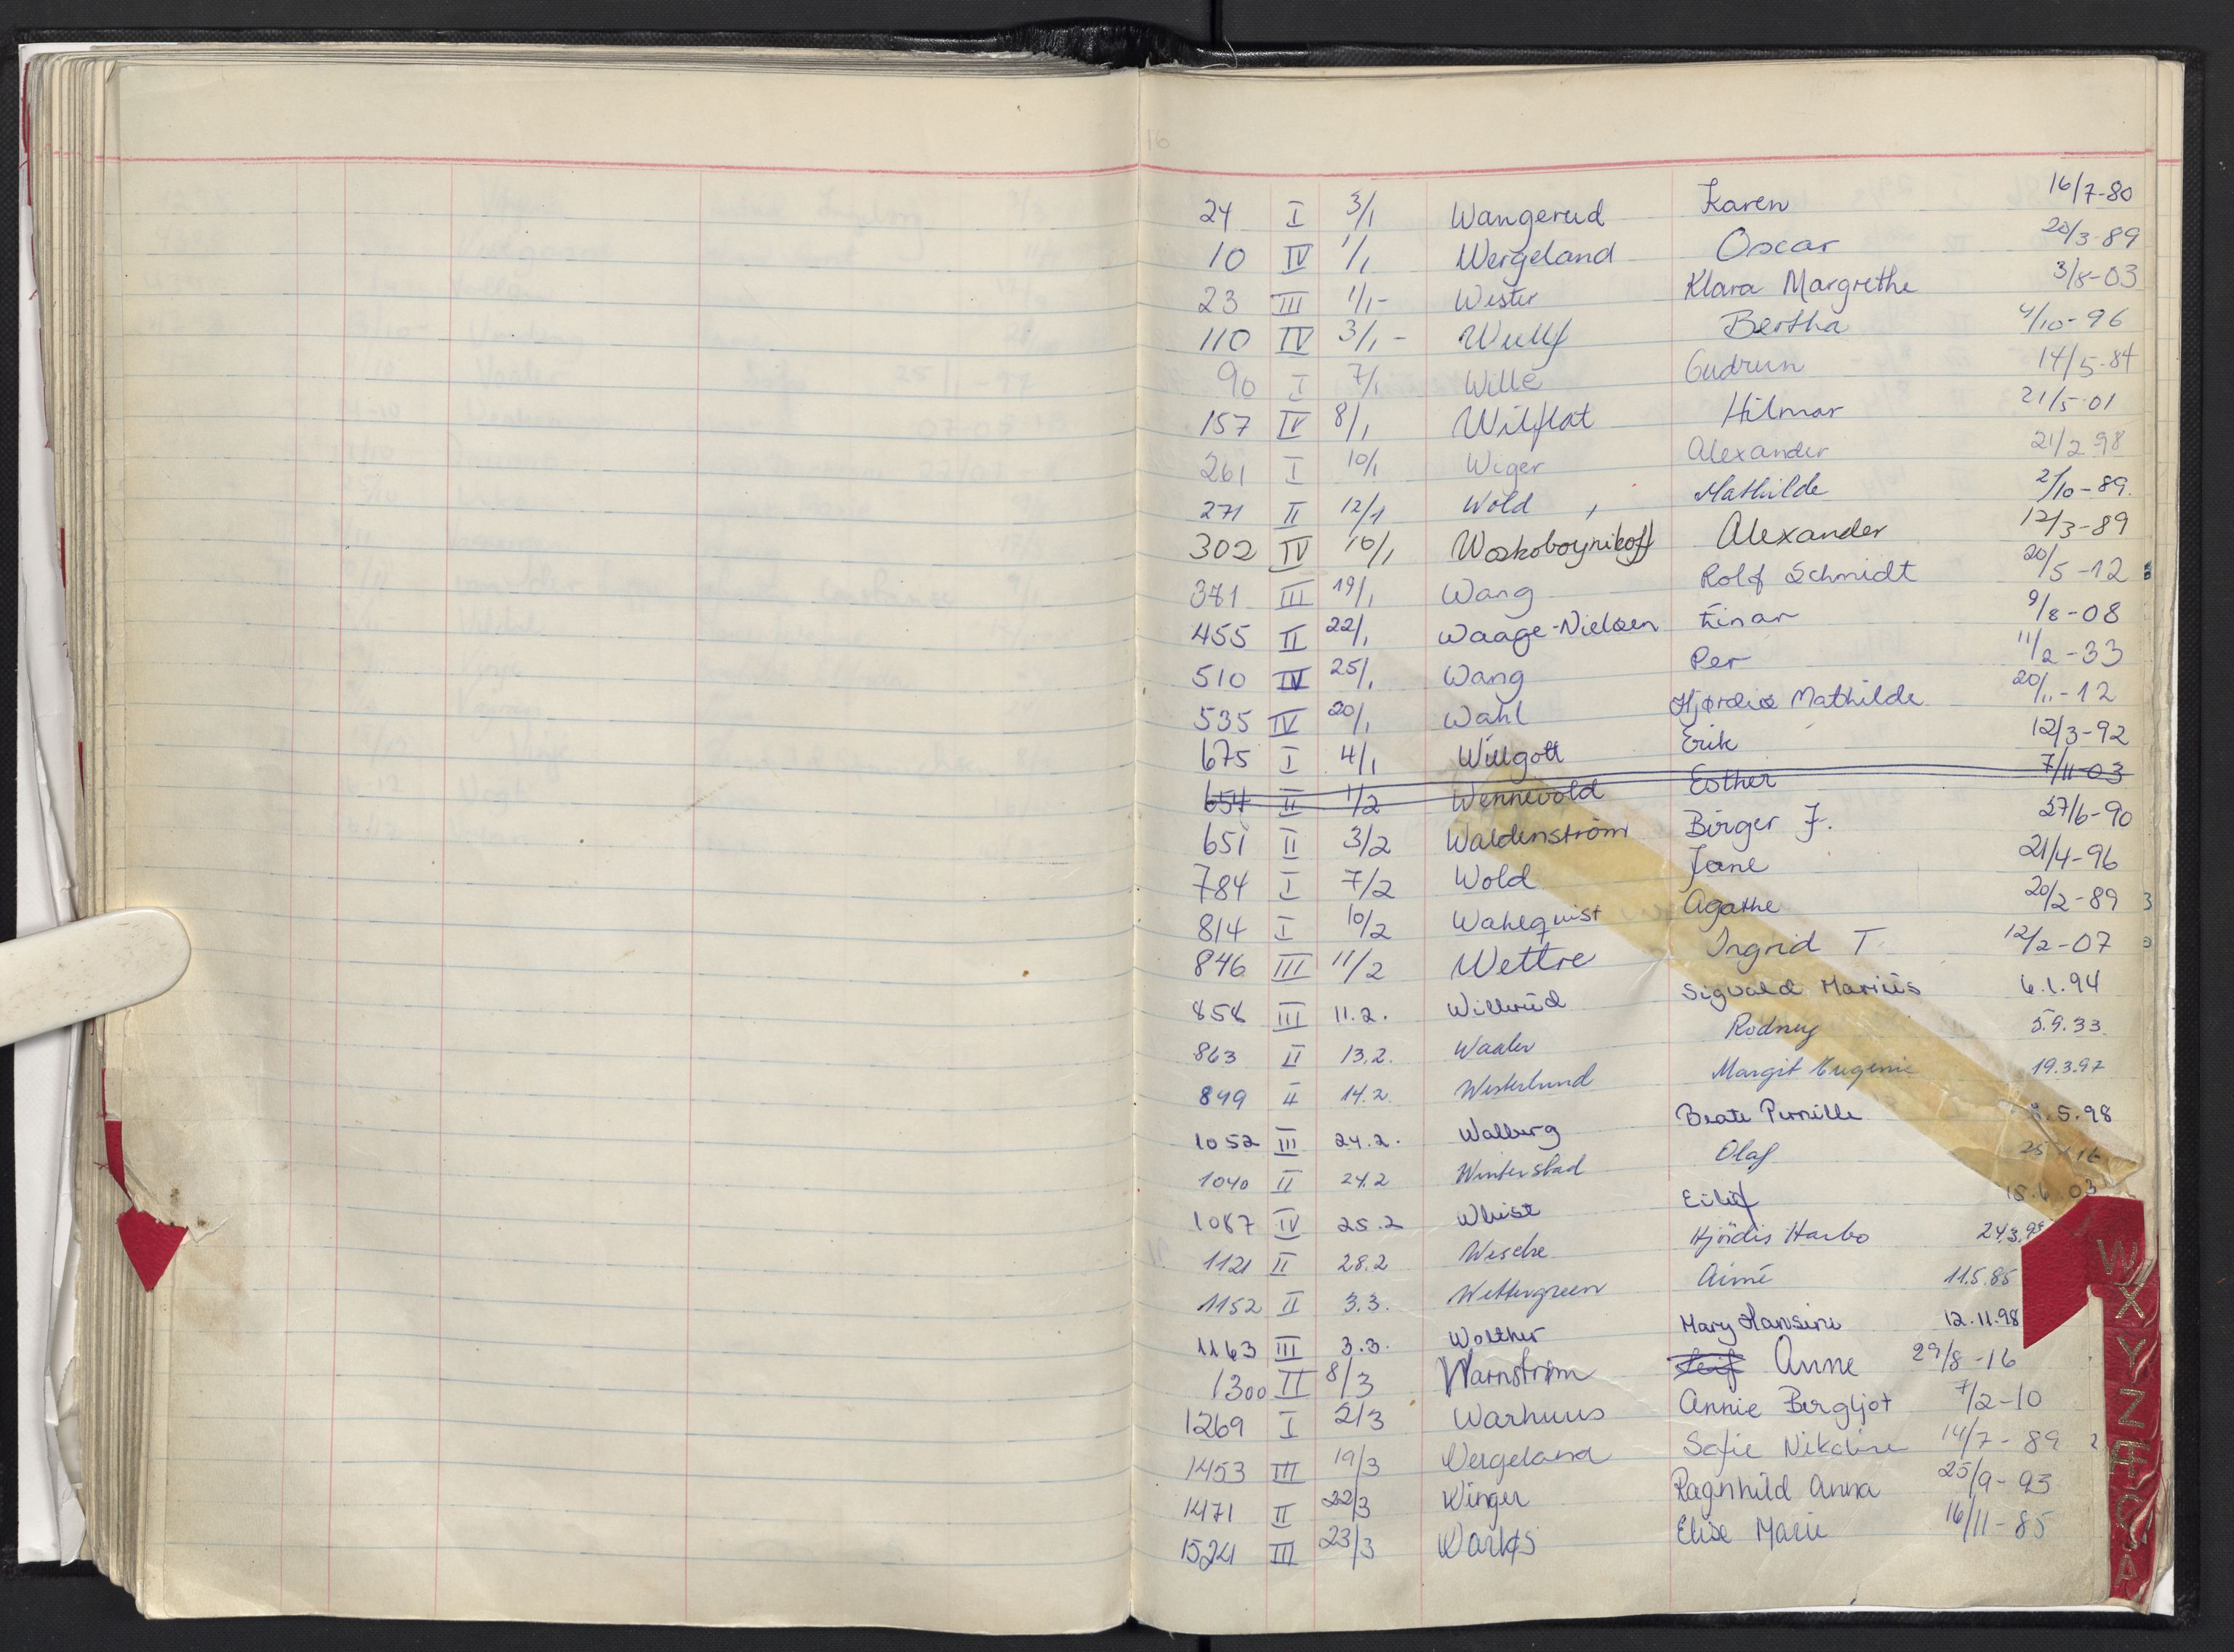 16
24 I 3/1 Wangerud Karen 16/7-80
10 IV 1/1 Wergeland Oscar 20/3-89
23 III 1/1- Wester Klara Margrethe 3/8-03
110 IV 3/1- Wulff Bertha 4/10-96
90 I 7/1 Wille Gudrun 14/5-84
157 IV 8/1 Wilflat Hilmar 21/5-01
261 I 10/1 Wiger Alexander 21/2 98
271 II 12/1 Wold, Mathilde 2/10-89.
302 IV 10/1 Woskoboynikoff Alexander 12/3-89
371 III 19/1 Wang Rolf Schmidt 20/5-12
455 II 22/1 Waage-Nielsen Einar 9/8-08
510 IV 25/1 Wang Per 11/2-33
535 IV 20/1 Wahl Hjørdis Mathilde 20/11-12
675 I 4/1 Willgott Erik 12/3-92
654 II 1/2 Wennevold Esther 7/11-03
651 II 3/2 Waldenstrøm Birger J. 27/6-90
784 I 7/2 Wold Jane 21/4-96
814 I 10/2 Wahlquist Agathe 20/2-89 3
846 III 11/2 Wettre Ingrid T. 12/2-07
858 III 11.2. Willerud Sigvald Marius 6.1.94
863 II 13.2. Waaler Rodney 5.9.33.
849 II 14.2. Westerlund Margit Eugenie 19.3.97
1052 III 24.2. Walberg Beate Pernille 5.98
1040 II 24.2 Winterstad Olaf 25 16
1087 IV 25.2 Whist Eilif 15.6 03
1121 II 28.2 Wesche Hjördis Harbo 24.3.9
1152 II 3.3. Wettergreen Aimé 11.5.85
1163 III 3.3. Wolther Mary Hansine 12.11.98
1300 II 8/3 Warnstrøm Leif Anne 29/8-16
1269 I 2/3 Warhuus Annie Bergljot 7/2-10
1453 III 19/3 Wergeland Sofie Nikoline 14/7-89 2
1471 II 22/3 Winger Ragnhild Anna 25/9-93
1524 III 23/3 Elise Marie 16/11-85
W
X
Y
Z
Æ
Ø